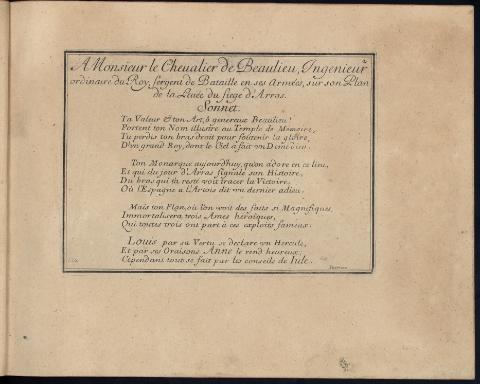 A Monsieur le Cheualier de Beaulieu, Ingenieur
ordinaire du Roy, sergent de Bataille en ses Armées, sur son Plan
de la Leuée du siege d'Arras.
Sonnet.
Ta Valeur & ton Art, ô genereux Beaulieu!
Portent ton Nom illustre au Temple de Memoire,
Tu perdis ton bras droit pour soûtenir la gloire,
D'vn grand Roy, dont le Ciel a fait vn Demi dieu.
Ton Monarque aujourd'huy, qu'on adore en ce lieu,
Et qui du jour d'Arras signale son Histoire,
Du bras qui tu resté voit tracer la Victoire,
Où l'Espagne a l'Artois dit vn dernier adieu.
Mais ton Plan, où l'on voit des faits si Magnifiques,
Immortalisera trois Ames heroïques,
Qui toutes trois ont part a ces exploits fameux.
Louis par sa Vertu se declare vn Hercule,
Et par ses Oraisons Anne le rend heureux;
Cependant tout se fait par les conseils de Iule.